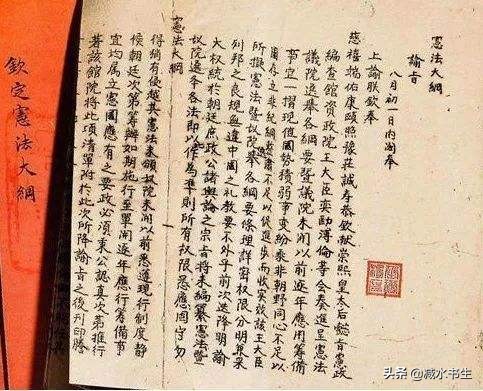 憲法大綱
諭旨
八月初一日內閣奉
上諭朕欽奉
慈禧端佑康頤照豫莊誠壽恭欽獻崇熙皇太后懿旨憲政
編查館資政院王大臣奕劻溥倫等會奏進呈憲法
議院選舉各綱要暨議院未開以前逐年應行籌備
事宜一摺現值國勢積弱事變紛乘非朝野同心不足以
圖存立非紀綱整肅不足以促進步而收實效該王大臣
所擬憲法暨議院選舉各綱要條理詳密權限分明兼采
列邦之良規無違中國之禮教要不外乎前次迭降明諭
大權統於朝廷庶政公諸輿論之宗旨將來編纂憲法暨
議院選舉各法即以作為準則所有權限悉應固守勿
憲法大綱
得稍有侵越其憲法未頒議院未開以前悉遵現行制度靜
候朝廷次第籌辦如期施行至單開逐年應行籌備事
宜均屬立憲國應有之要政必須秉公認真次第推行
著該館院將此項清單附於此次所降諭旨之後刊印謄
欽定憲法大綱
头条 @减水书生